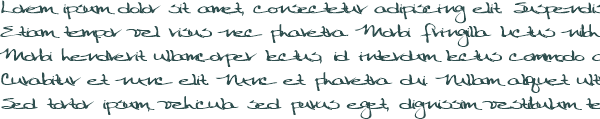 Lorem ipsum dolor sit amet, consectetur adipiscing elit. Suspendis
Etiam tempor vel risus nec pharetra. Morbi fringilla luctus nibh
Morbi hendrerit ullamcorper lectus, id interdum lectus commodo
Curabitur et nunc elit. Nunc et pharetra dui. Nullam aliquet ult
Sed tortor ipsum, vehicula sed purus eget, dignissim vestibulum te